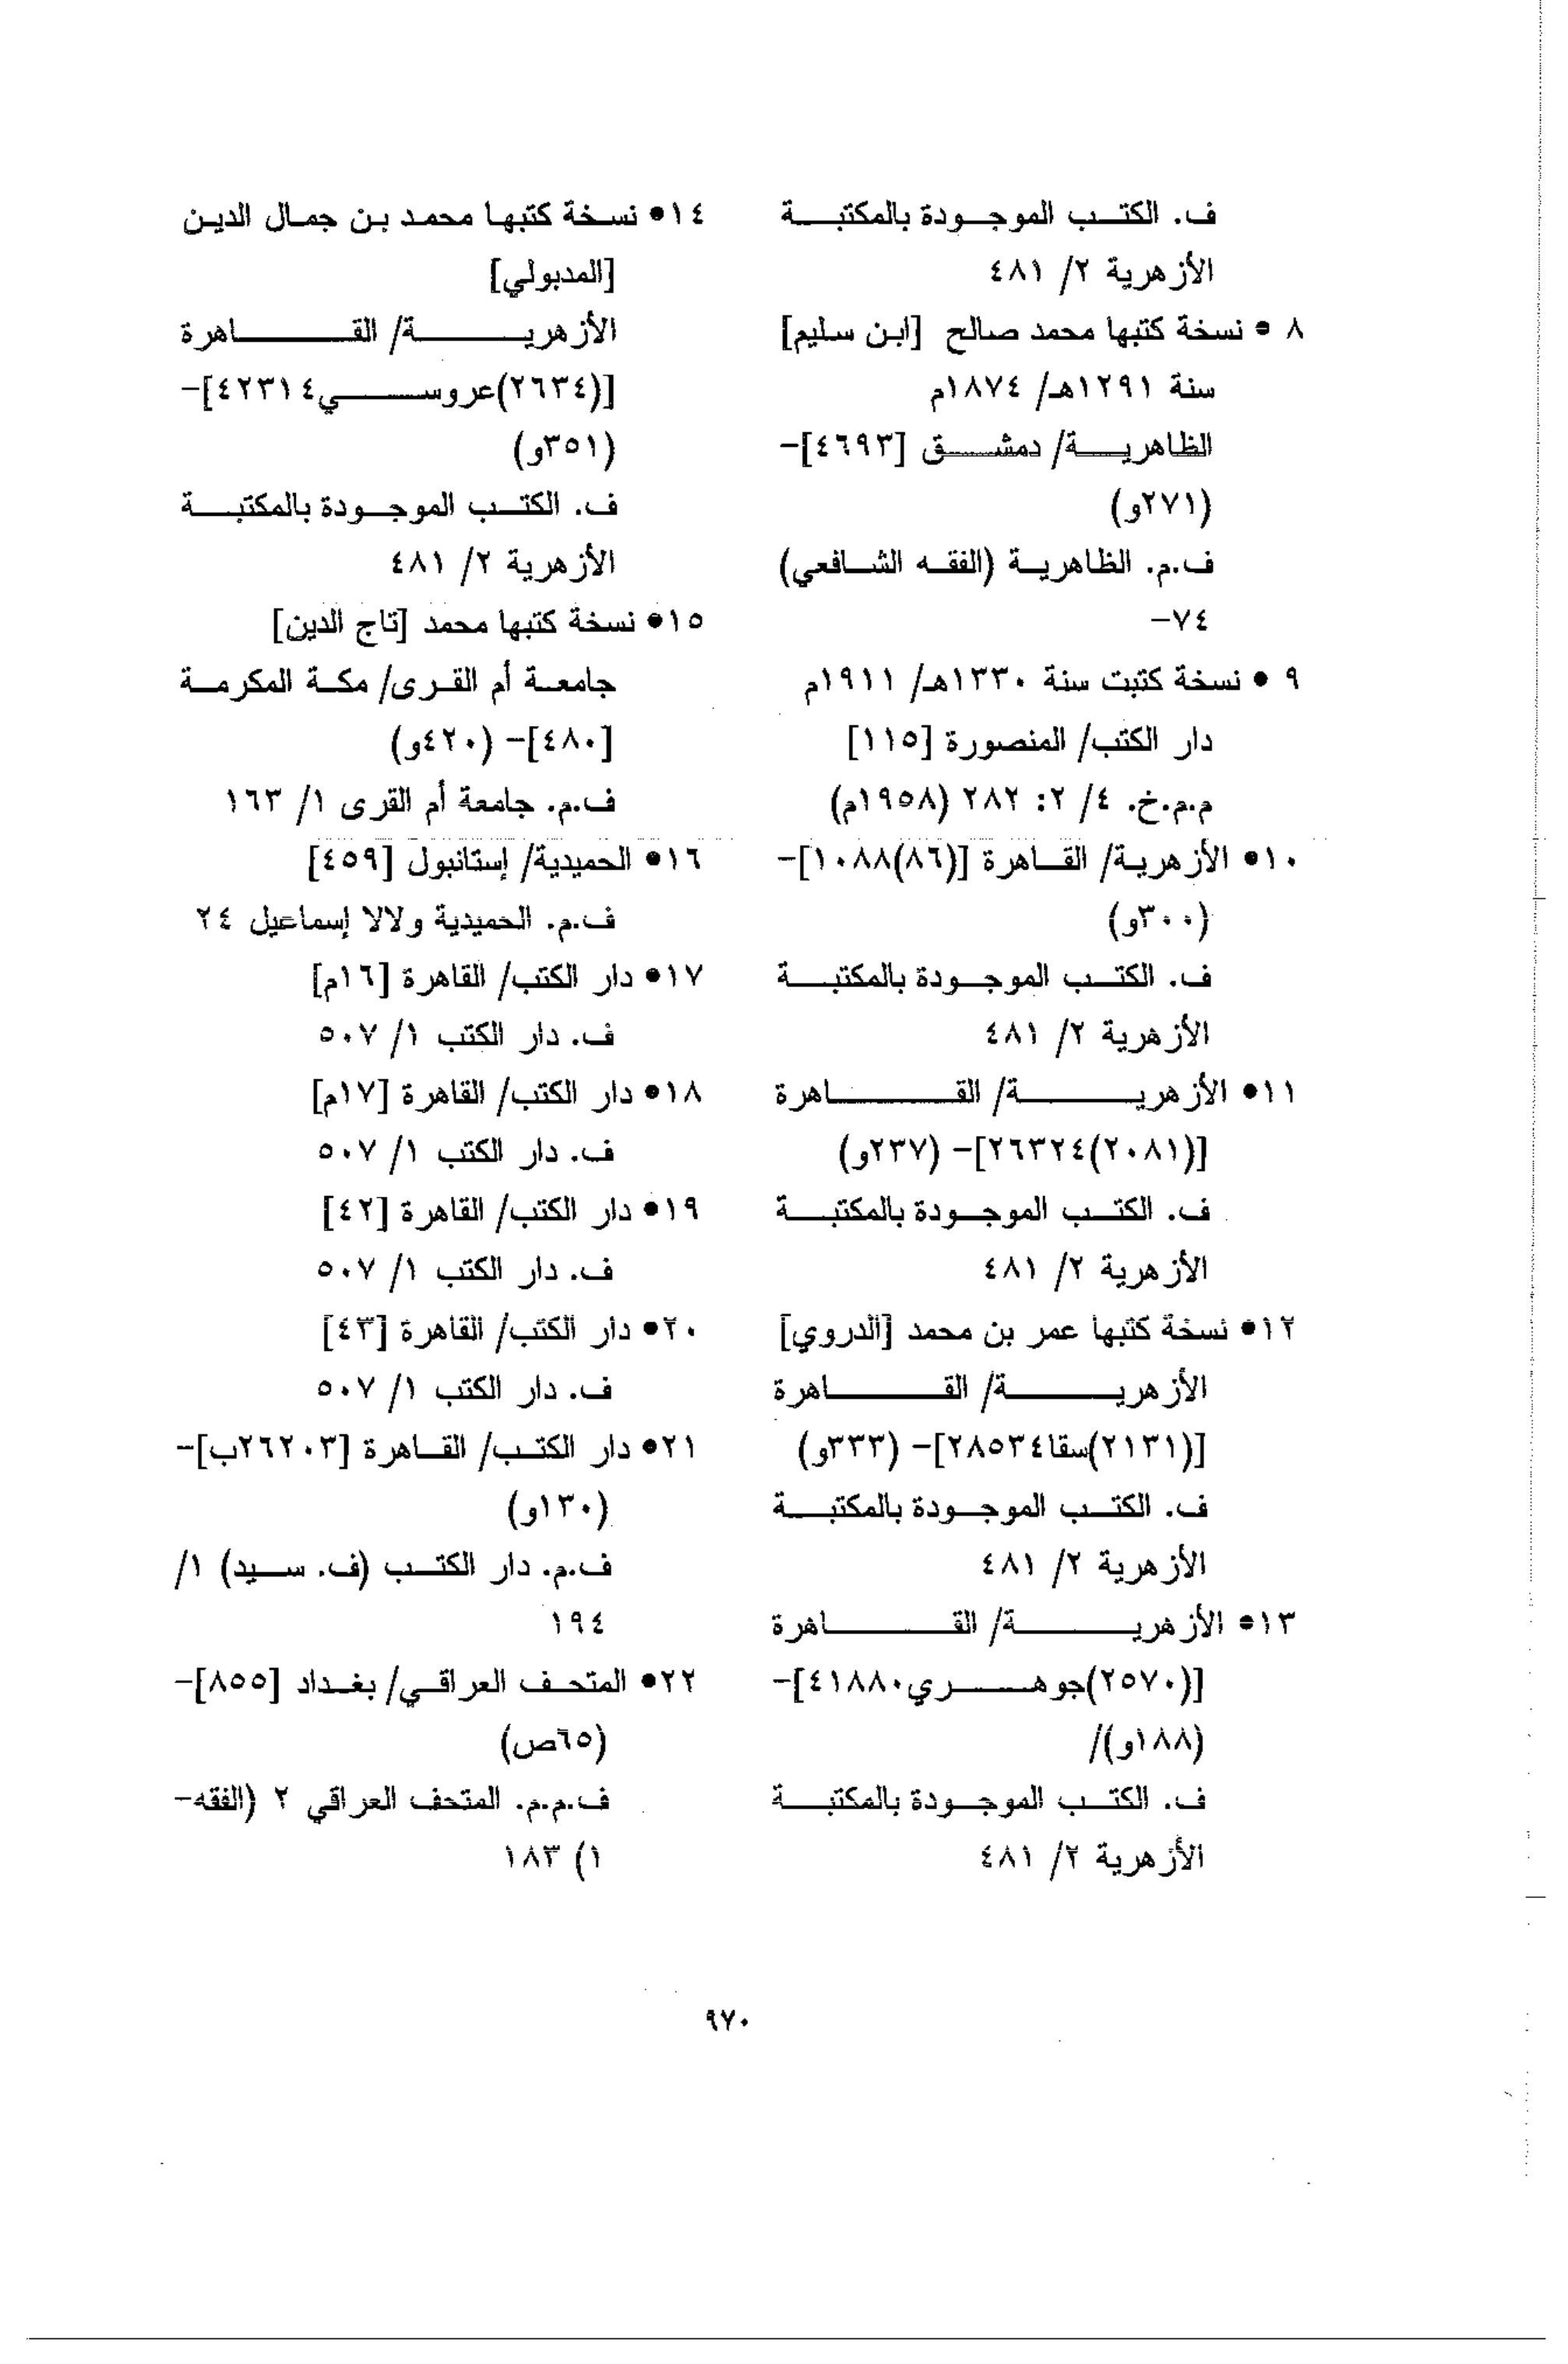 ف. الكتب الموجودة بالمكتبة
الأزهرية ٢/ ٤٨١
٨ • نسخة كتبها محمد صالح [ابن سليم]
سنة ١٢٩١هـ/ ١٨٧٤م
الظاهرية/ دمشق [٤٦٩٣]–
(٢٧١و)
ف.م. الظاهرية (الفقه الشافعي)
٧٤–
٩ • نسخة كتبت سنة ١٣٣٠هـ/ ١٩١١م
دار الكتب/ المنصورة [١١٥]
م.م.خ. ٤/ ٢: ٢٨٢ (١٩٥٨م)
١٠• الأزهرية/ القاهرة [(٨٦)١٠٨٨]–
(٣٠٠و)
ف. الكتب الموجودة بالمكتبة
الأزهرية ٢/ ٤٨١
١١• الأزهرية/ القاهرة
[(٢٠٨١)٢٦٣٢٤]– (٢٣٧و)
ف. الكتب الموجودة بالمكتبة
الأزهرية ٢/ ٤٨١
١٢• نسخة كتبها عمر بن محمد [الدروي]
الأزهرية/ القاهرة
[(٢١٣١)سقا٢٨٥٣٤]– (٣٣٣و)
ف. الكتب الموجودة بالمكتبة
الأزهرية ٢/ ٤٨١
١٣• الأزهرية/ القاهرة
[(٢٥٧٠)جوهري٤١٨٨٠]–
(١٨٨و)/
ف. الكتب الموجودة بالمكتبة
الأزهرية ٢/ ٤٨١
١٤• نسخة كتبها محمد بن جمال الدين
[المدبولي]
الأزهرية/ القاهرة
[(٢٦٣٤)عروسي٤٢٣١٤]–
(٣٥١و)
ف. الكتب الموجودة بالمكتبة
الأزهرية ٢/ ٤٨١
١٥• نسخة كتبها محمد [تاج الدين]
جامعة أم القرى/ مكة المكرمة
[٤٨٠]– (٤٢٠و)
ف.م. جامعة أم القرى ١/ ١٦٣
١٦• الحميدية/ إستانبول [٤٥٩]
ف.م. الحميدية ولالا إسماعيل ٢٤
١٧• دار الكتب/ القاهرة [١٦م]
ف. دار الكتب ١/ ٥٠٧
١٨• دار الكتب/ القاهرة [١٧م]
ف. دار الكتب ١/ ٥٠٧
١٩• دار الكتب/ القاهرة [٤٢]
ف. دار الكتب ١/ ٥٠٧
٢٠• دار الكتب/ القاهرة [٤٣]
ف. دار الكتب ١/ ٥٠٧
٢١• دار الكتب/ القاهرة [٢٦٢٠٣ب]–
(١٣٠و)
ف.م. دار الكتب (ف. سيد) ١/
١٩٤
٢٢• المتحف العراقي/ بغداد [٨٥٥]–
(٦٥ص)
ف.م.م. المتحف العراقي ٢ (الفقه–
١) ١٨٣
٩٧٠